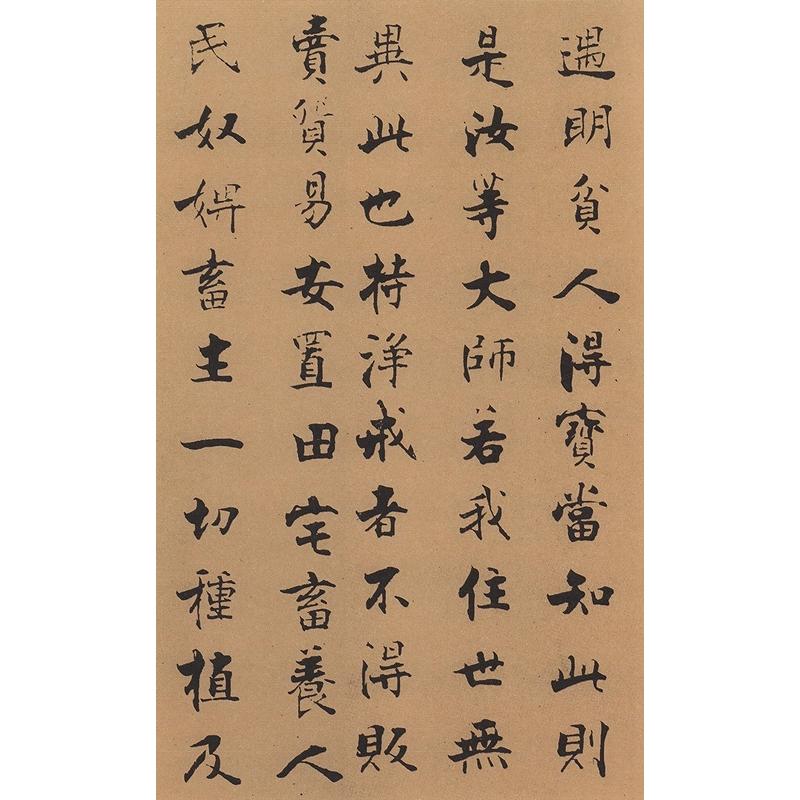 遇明貧人得寶當知此則
是汝等大師若我住世無
異此也持淨戒者不得販
賣貿易安置田宅畜養人
民奴婢畜主一切種植及